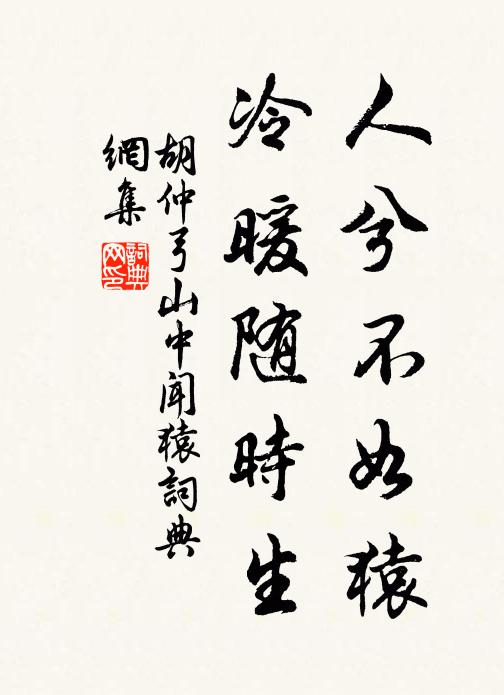 人兮不如猿
冷暖随時生
胡仲弓山中闻猿詞典
網集
詞典
网印